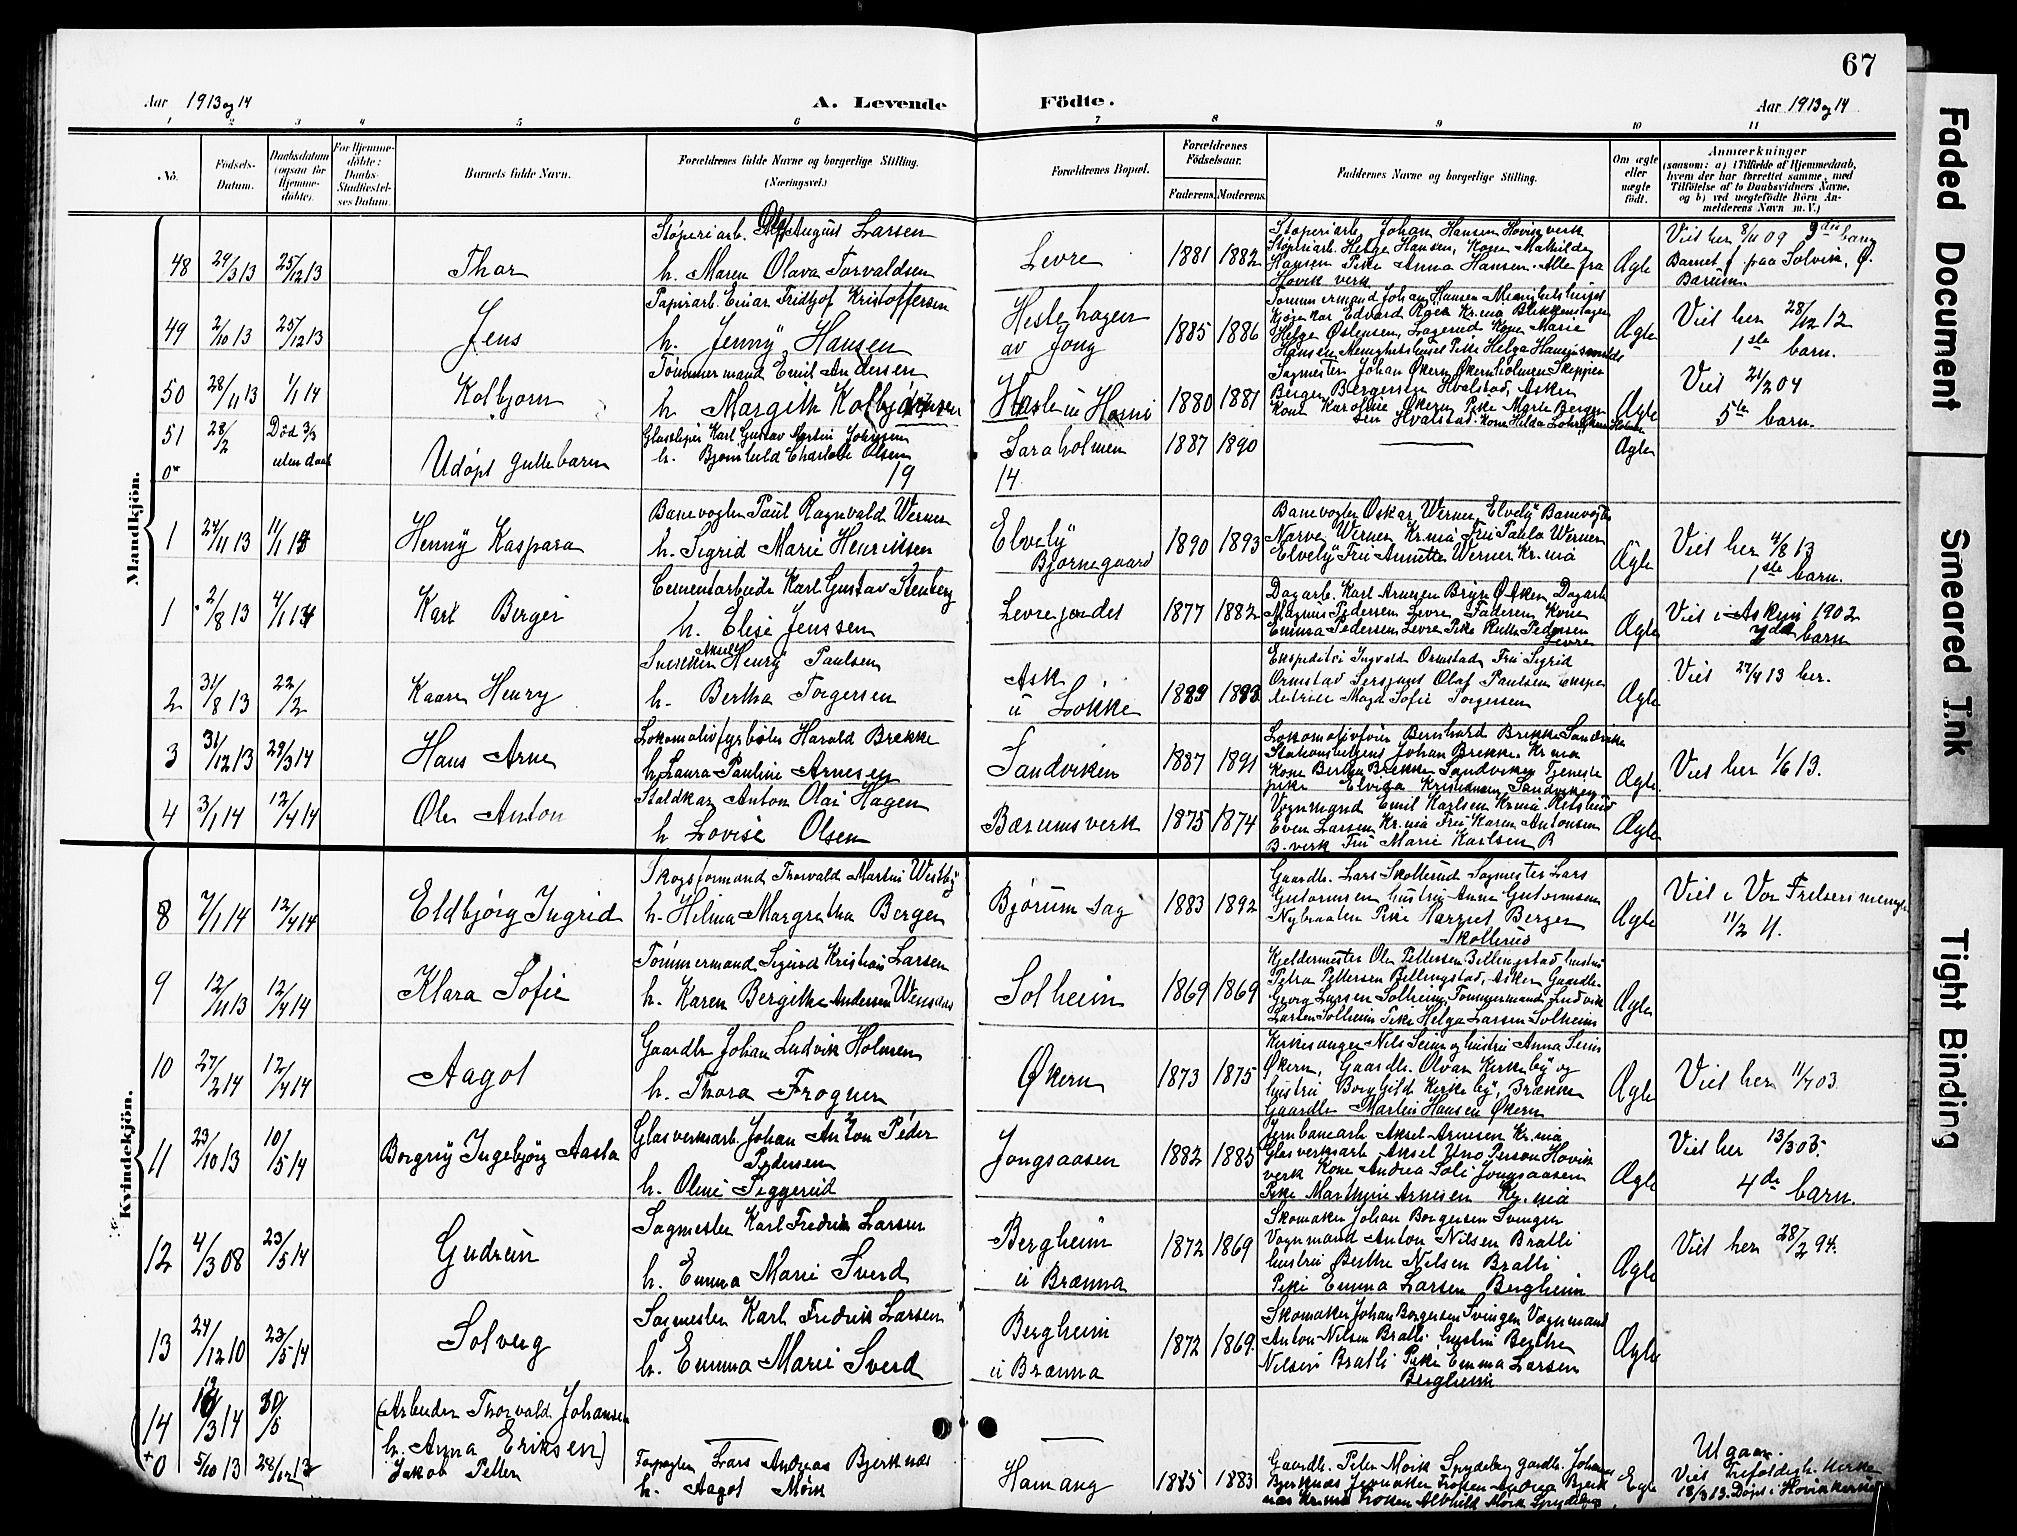 67
Aar 1913 og 14
A. Levende
Födte.
Aar 1913 og 14
1 2 3 4 5 6 7 8 9 10 11
No.
Födsels-Datum.
Daabsdatum (ogsaa for Hjemmedöbte).
For Hjemmedöbte: Daabs-Stadfæstelses Datum.
Barnets fulde Navn.
Forældrenes fulde Navne og borgerlige Stilling.
(Næringsvei.)
Forældrenes Bopæl.
Forældrenes Födselsaar.
Faderens. Moderens.
Faddernes Navne og borgerlige Stilling.
Om ægte eller uægte födt.
Anmærkninger
(saasom: a) i Tilfælde af Hjemmedaab, hvem der har forrettet samme, med Tilföielse af to Daabsvidners Navne, og b) ved uægtefödte Börn Anmelderens Navn m. V.)
Mandkjön.
48 29/3 13 25/12 13 Thor
Støperiarb. Olaf August Larsen
h. Maren Olava Torvaldsen
Levre 1881 1882
Støperiarb. Johan Hansen Høvik verk
Støperiarb. Helge Hansen, Kone Mathilde
Hansen Pike Anna Hansen. Alle fra
Høvik verk
Ægte
Viet her 8/11 09 3die barn
Barnet f. paa Solvik, Ø.
Bærum
49 2/10 13 25/12 13 Jens
Papirarb. Einar Fridtjof Kristoffersen
h. Jenny Hansen
Hestehagen
av Jong
1885 1886
Ægte
Viet her 28/12 12
1ste barn.
50 28/11 13 1/1 14 Kolbjørn
Tømmermand Emil Andersen
h. Margith Kolbjørnsen
1880 1881
Sagmester Johan Økern Økernholmen Skipper
Berger Bergersen Hvalstad, Asker
Kone Karoline Økern Pike Marte Berger
Ægte
Viet 21/2 04
5te barn.
51 28/2 Død 3/3
uten daab
Udøpt guttebarn
Glassliper Karl Gustav Martin Johnsen
h. Bjørnhild Charlotte Olsen
Saraholmen 1887 1890 Ægte
19 14.
1 24/11 13 11/1 Henny Kaspara
Banevogter Paul Ragnvald Werner
h. Sigrid Marie Henriksen
Elvely
Bjørnegaard
1890 1893
Banevogter Oskar Werner, Elvely Banevogter
Narve Werner Kr.nia Frü Paula Werner
Elvely Frü Annette Werner Kr.nia
Ægte
Viet her 4/8 13
1ste barn.
1 2/8 13 4/1 14 Karl Berger
Cementarbeide Karl Gustav Stenberg
h. Elise Jenssen
Levrejordet 1877 1882
Dagarb. Karl Arnesen Asker Dagarb
Magnus Pedersen Levre, Faderen, Kone
Emma Pedersen Levre Pike Ruth Pedersen
Levre
Ægte
Viet i Asker 1902
7de barn
2 31/8 13 22/2 Kaare Henry
Snekker Aksel Henry Paulsen
h. Bertha Torgersen
Ask
u Løkke
Ekspeditør Ingvald Ormstad Frü Sigrid
Ormstad Sersjant Olaf Paulsen Ekspe
ditrice Maga Sofie Torgersen
Ægte
Viet 27/4 13 her.
3 31/12 13 29/3 14 Hans Arne
Lokomotivfyrbøter Harald Brekke
h. Laura Pauline Arnesen
Sandviken 1887 1891
Lokomotivfører Bernhard Brekke Sandviken
Stationsbetjent Johan Brekke Kr.nia
Kone Bertha Brekke Sandviken Tjeneste
pike Elvida Kristiansen Sandviken
Ægte
Viet her 1/6 13.
4 3/1 14 12/4 14 Ole Anton
Staldkar Anton Olai Hagen
h. Lovise Olsen
Bærumsverk 1875 1874
Vognmand Emil Karlsen Kr.nia
Even Larsen Kr.nia Frü Karen Antonsen
B. verk Frü Marie Karlsen
Ægte
Kvindekjön.
8 7/1 14 12/4 14 Eldbjørg Ingrid
Skogsformand Thorvald Martin Westby
h. Helma Margretha Berger
Bjørum sag 1883 1892
Gaardbr. Lars Skollerud Sagmester Lars
Gutormsen hustru Anna Gutormsen
Nybraaten Pike Harriet Berger
Skollerud
Ægte
Viet i Vor Frelsers menigh
11/2 11.
9 12/11 13 12/4 14 Klara Sofie
Tømmermand Sigurd Kristian Larsen
h. Karen Bergithe Andersen
Solheim 1869 1869
Kjeldermester Ole Pettersen Billingstad hustru
Petra Pettersen Billingstad, Asker Gaardbr.
Georg Larsen Solheim, Tømmermand Ludvik
Larsen Solheim Pike Helga Larsen Solheim
Ægte
10 27/2 14 12/4 14 Aagot
Gaardbr Johan Ludvik Holmen
h. Thora Frogner
Økern 1873 1875
Kirkesanger Nils Seim og hustru Anna Seim
Økern, Gaardbr. Olvar Kirkeby og
hustru Borghild Kirkeby, Brække
Gaardbr Martin Hansen Økern
Ægte
Viet her 11/7 03.
11 23/10 13 10/5 14 Borgny Ingebjørg Aasta
Glasverksarb. Johan Anton Peder
Pedersen
h. Oline Siggerud
Jongsaasen 1882 1885
Jernbanearb Aksel Arnesen Kr.nia
Glasverksarb Aksel Uno Person Høvik
verk Kone Andrea Soli Jongsaasen
Pike Marthine Arnesen Kr.nia
Ægte
Viet her 13/3 05.
4de barn.
12 4/3 08 23/5 14 Gudrun
Sagmester Karl Fredrik Larsen
h. Emma Marie Sverd
Bergheim
u Brænna
1872 1869
Skomaker Johan Borgersen Svingen
Vognmand Anton Nilsen Bratli
hustru Berthe Nilsen Bratli
Pike Emma Larsen Bergheim
Ægte
Viet her 28/2 94.
13 24/12 10 23/5 14 Solveig
Sagmester Karl Fredrik Larsen
h. Emma Marie Sverd
Bergheim
u Brænna
1872 1869.
Skomaker Johan Borgersen Svingen Vognmand
Anton Nilsen Bratli hustru Berthe
Nilsen Bratli Pike Emma Larsen
Bergheim
Ægte
14
(Arbeider Thorvald Johansen
h. Anna Eriksen)
0 5/10 13 28/12 13 Jakob Petter
Forpagter Lars Andreas Bjerknæs
h. Aagot Mørk
Hamang 1885 1883
Gaardbr. Peter Mørk Spydeberg gaardbr. Johannes
Ægte
Utgaar.
Viet Trefoldigh. kirke
18/3 13. Døpt i Høvik kirke
Faded Document
Smeared Ink
Tight Binding